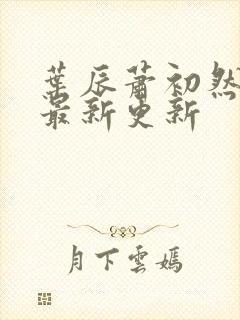 葉辰蕭初然
最新更新
月下雲嫣